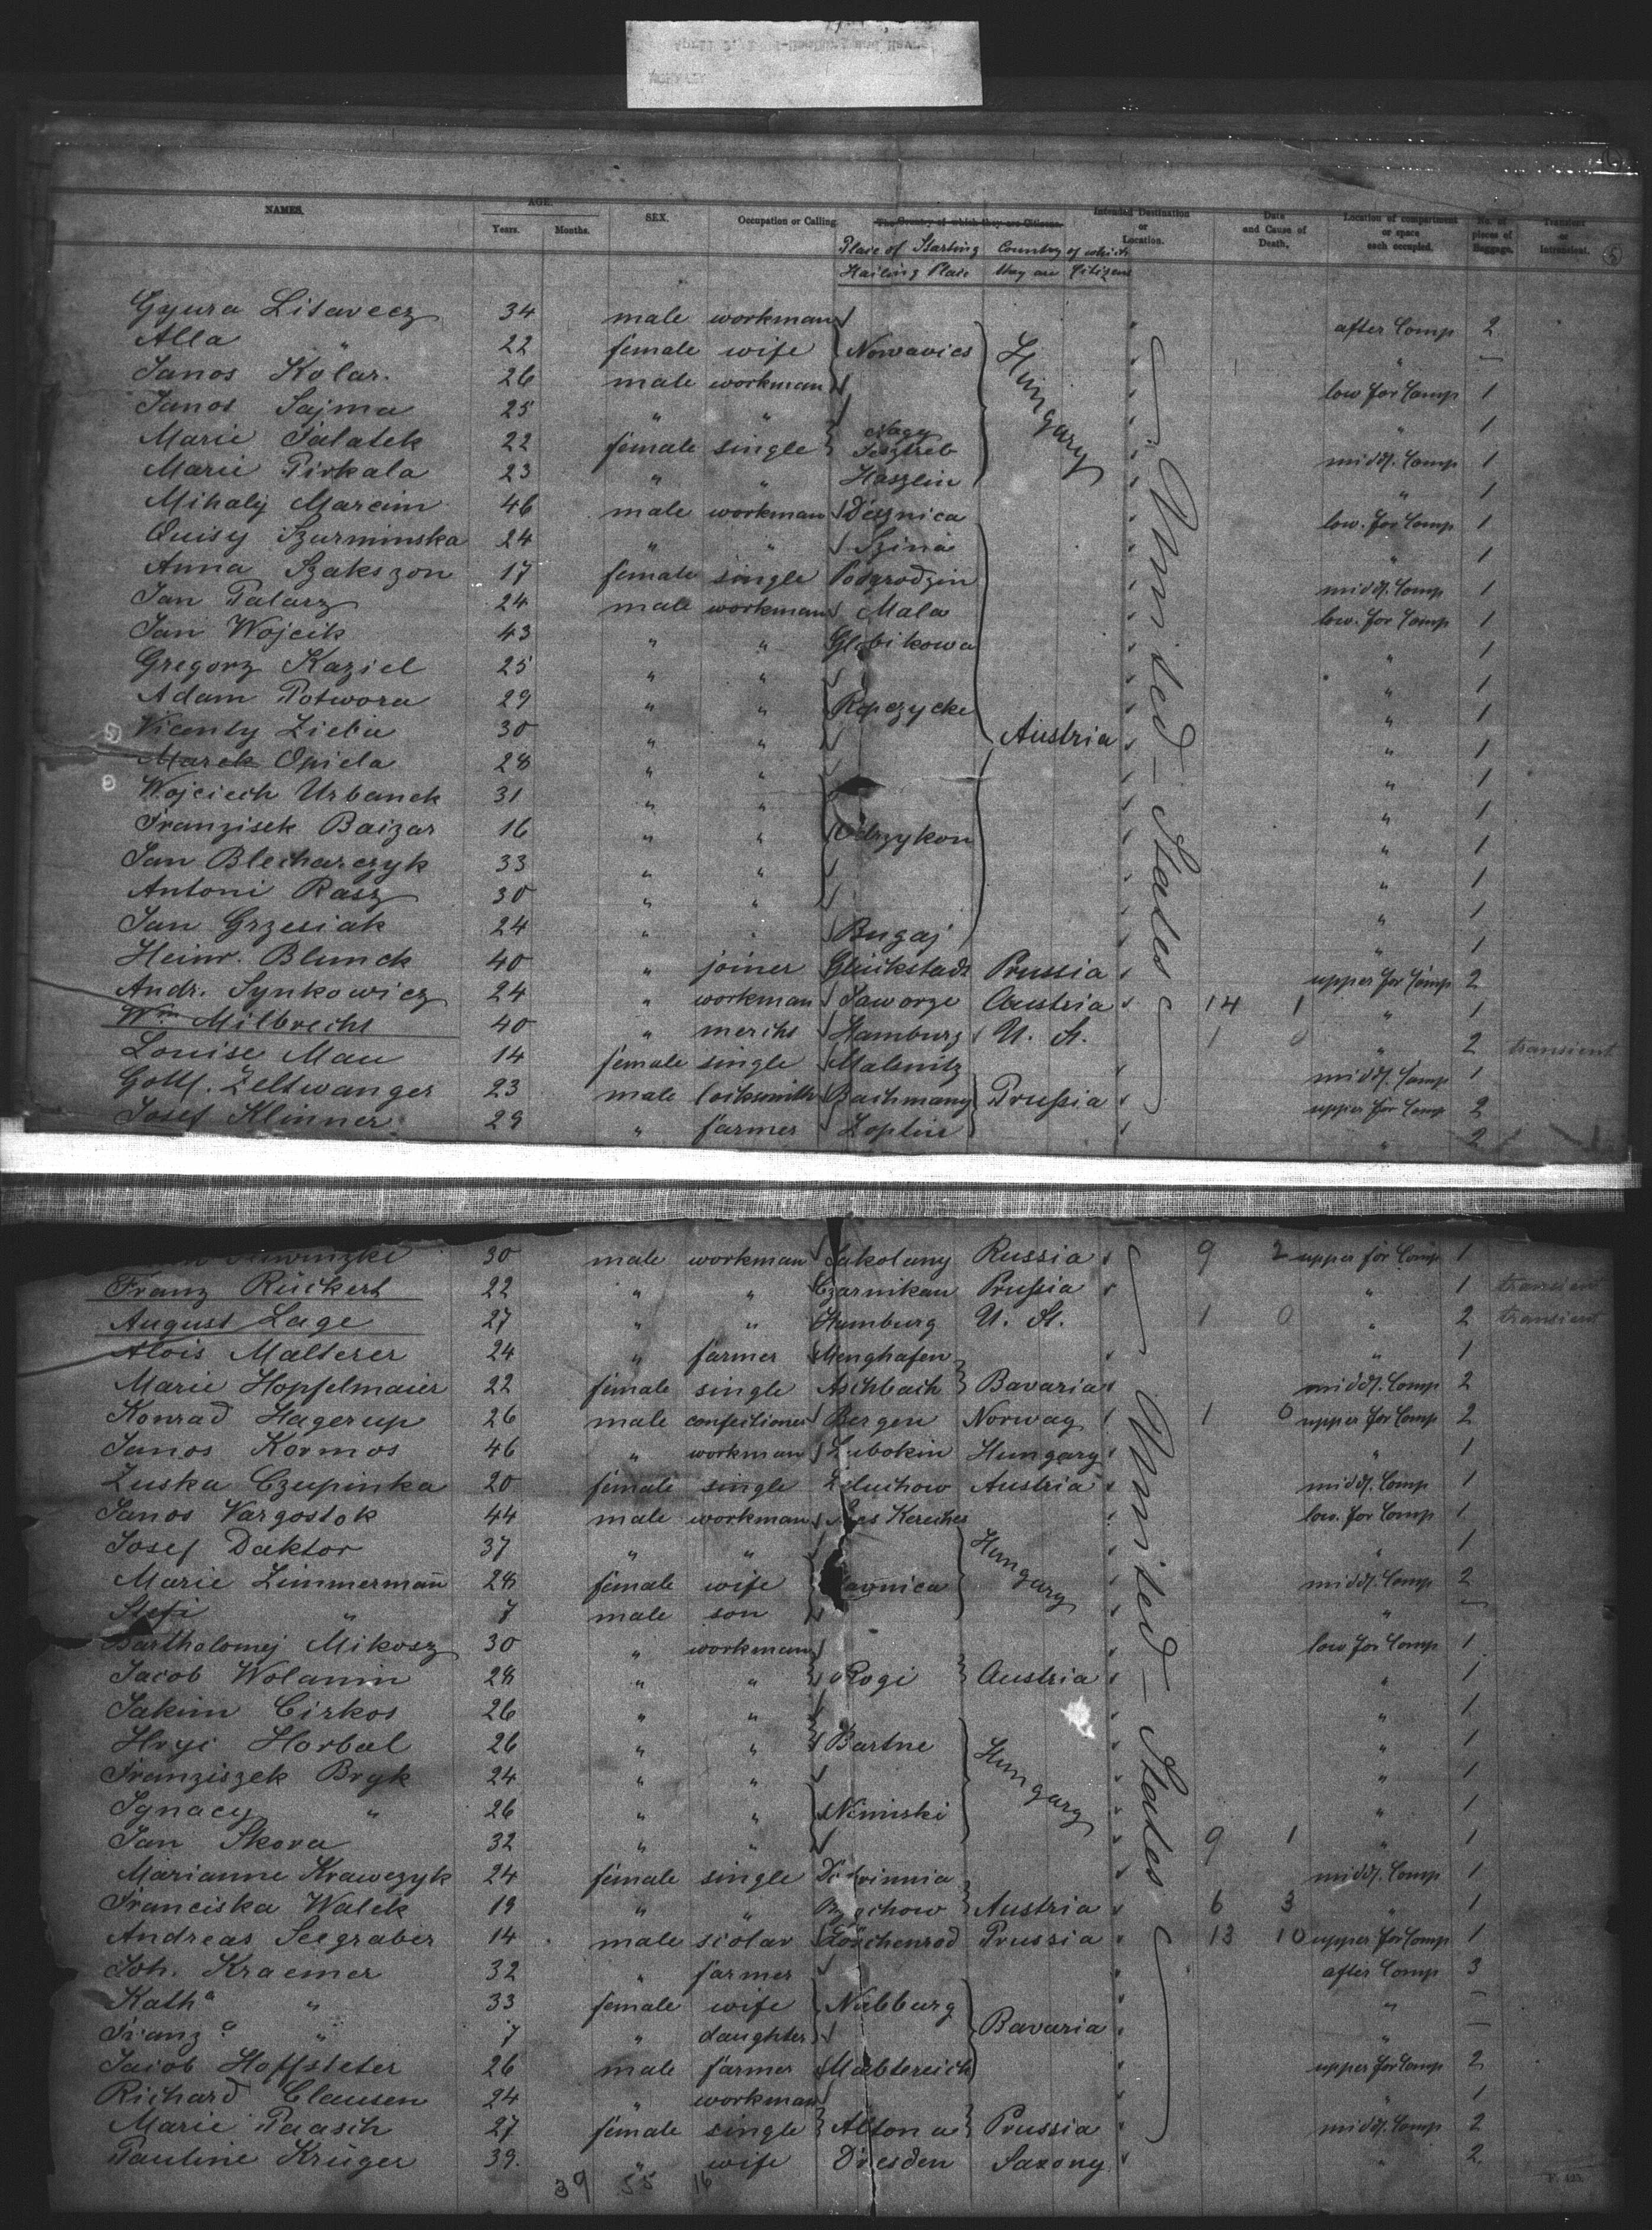 NAMES. AGE. SEX. Occupation or Calling. The Country of which they are Citizens. Intended Destination or Location. Date and Cause of Death. Location of compartment or space each occupied. No. of pieces of Baggage. Transient or Intransient.
Years. Months.
Place of Starting Country of which
Hailing Place they are Citizens
5
Gyura Litavecz 34 male workman after Comp 2
Alla " 22 female wife Nowavies Hungary " —
Janos Kolar. 26 male workman low for Comp 1
Janos Sajma 25 " " " 1
Marie Palatek 22 female single Nagy middl. Comp 1
Marie Pirkala 23 " " Haszlin " 1
Mihaly Marcim 46 male workman Desznica low. for Comp 1
Quisy Szurminska 24 " " Szina " 1
Anna Szakszon 17 female single Podgrodzin middl. Comp 1
Jan Palarz 24 male workman Mala low. for Comp 1
Jan Wojcik 43 " " Globikowa " 1
Gregorz Kaziel 25 " " " 1
Adam Potwora 29 " " Ropczycke " 1
Vicenty Zieba 30 " " Austria " 1
Marek Opiela 28 " " " 1
Wojciech Urbanek 31 " " " 1
Franzisek Baizar 16 " " Odrzykon " 1
Jan Blecharczyk 33 " " " 1
Antoni Rasz 30 " " " 1
Jan Grzesiak 24 " " Bugaj " 1
Heinr. Blunck 40 " joiner Glückstadt Prussia upper for Comp 2
Andr. Synkowicz 24 " workman Jaworze Austria 14 1 " 1
Wm Milbrecht 40 " mercht Hamburg U. St. 1 0 " 2 transient
Louise Mau 14 female single Malsnitz middl. Comp 1
Gottl. Zeltwanger 23 male locksmith Bachmany Prussia upper for Comp 2
Josef Klinner 29 " farmer Zoplin " 2
United-States
30 male workman Sakolany Russia 9 2 upper for Comp 1
Franz Rückert 22 " " Czarnikau Prussia " 1 transient
August Lage 27 " " Hamburg U. St. 1 0 " 2 transient
Alois Malterer 24 " farmer Menghafen " 1
Marie Hopfelmaier 22 female single Aschbach Bavaria middl. Comp 2
Konrad Hagerup 26 male confectioner Bergen Norway 1 0 upper for Comp 2
Janos Kormos 46 " workman Lubokin Hungary " 1
Zuska Czupinka 20 female single Zduchow Austria middl. Comp 1
Janos Vargostok 44 male workman Kereches low. for Comp 1
Josef Daktor 37 " " Hungary " 1
Marie Zimmermann 28 female wife middl. Comp 2
Stefi " 7 male son " —
Bartholomej Mikosz 30 " workman low for Comp 1
Jacob Wolanin 28 " " Rogi Austria " 1
Jakim Cirkos 26 " " " 1
Hryi Horbal 26 " " Bartne Hungary " 1
Franziszek Bryk 24 " " " 1
Ignacy " 26 " " Nimiski " 1
Jan Skora 32 " " 9 1 " 1
Marianne Krawczyk 24 female single middl. Comp 1
Franciska Walek 19 " " Austria 6 3 " 1
Andreas Seegraber 14 male scolar Prussia 13 10 upper for Comp 1
Joh. Kraemer 32 " farmer after Comp 3
Kath.a " 33 female wife Nabburg " —
Franz.a " 7 " daughter Bavaria " —
Jacob Hoffsteter 26 male farmer Mabtereich upper for Comp 2
Richard Clausen 24 " workman " 1
Marie Paasch 27 female single Altona Prussia middl. Comp 2
Pauline Krüger 39. " wife Dresden Saxony " 2.
United-States
39 55 16